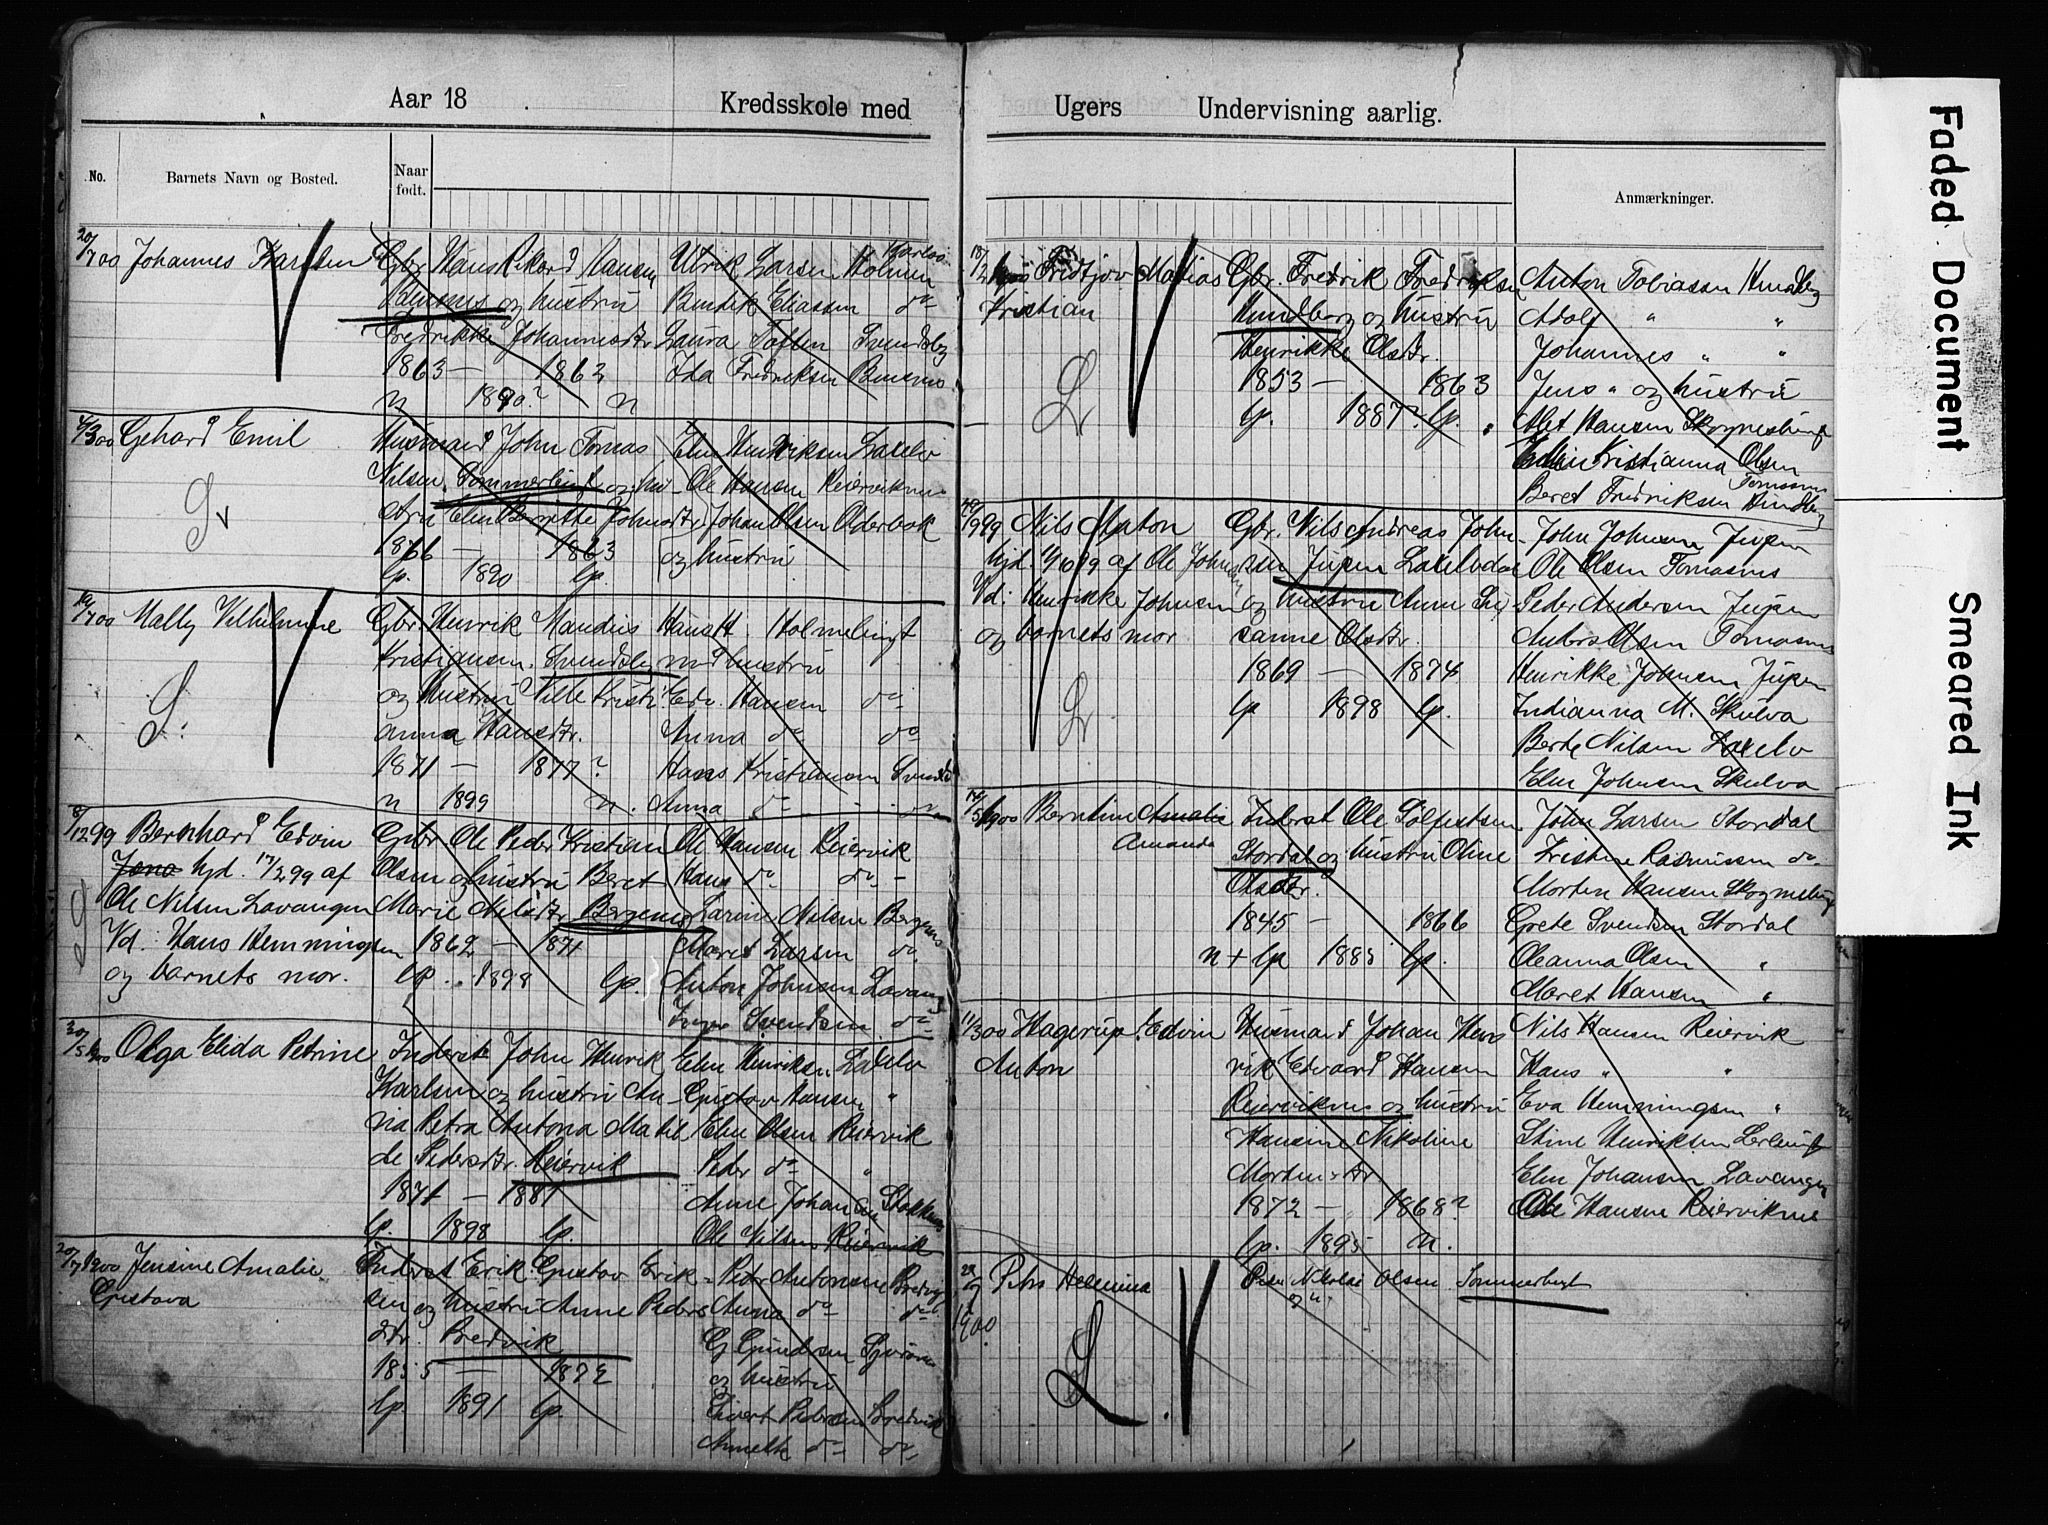 Aar 18 Kredsskole med
No. Barnets Navn og Bosted. Naar født.
20/7 00 Johannes Karlsen
Gbr Hans Rikard Hansen
og hustru
Fredrikke Johannesdtr
1863 — 1863
n 1890? n
Ulrik Larsen Holmen
Bendik Eliassen do
Laura Toften Svendsby
Ida Fredriksen
4/3 00 Gehard Emil
Husmand John Tomas
Nilsen, Sommerbugt og hu-
stru Elen Bergitte Johnsdtr
1866 — 1863
lp. 1890 lp.
Elen Henriksen Lakselv
Ole Hansen Reierviknes
Johan Olsen Olderbak
og hustru
19/7 00 Mally Vilhelmine
Gbr Henrik Mandus
Kristiansen, Svendsby
og Hustru Nille Kristi
anna Hansdtr.
1871 — 1877?
n 1899 n.
Hans H. Holmebugt
med hustru
Edv. Hansen do
Anna do do
Hans Kristiansen Svendsb
Anna do do
8/12 99 Bernhard Edvin
Jono hjd. 17/2 99 af
Ole Nilsen Lavangen
Vd. Hans Hemmingsen
og barnets mor.
Gbr Ole Peder Kristian
Olsen og hustru Beret
Marie Nilsdtr Bergenes
1862 — 1871
lp. 1898 lp.
Ole Hansen Reiervik
Hans do do
Larine Nilsen Bergenes
Maret Larsen do
Anton Johnsen Lavang
Svendsen do
30/5 1900 Olga Elida Petrine
Inderst John Henrik
Karlsen og hustru An-
na Petra Antona Matil
de Pedersdtr. Reiervik
1871 — 1881
lp. 1898 lp.
Elen Henriksen Lakselv
Gustav Hansen "
Elen Olsen Reiervik
Peder do "
Anne Johansen
Ole Nilsen Reiervik
20/7 1900 Jensine Amalie
Gustava
Inderst Erik Gustav Erik-
sen og hustru Anne Peders
dtr. Bredvik
1855 — 1872
lp. 1891 lp.
Peder Antonsen Bredvig
Anna do do
G Gundersen
og hustru
Eivert Pedersen Bredvik
do do
Ugers Undervisning aarlig.
Anmærkninger.
18/2 1900 Fridtjov Matias
Kristian
Gbr. Fredrik Fredriksen
Hundberg og hustru
Henrikke Olsdtr.
1853 — 1863
lp. 1887? lp.
Anton Tobiassen Hundberg
Adolf " "
Johannes " "
Jens " og hustru
Alet Hansen
Kristianna Olsen
Tomassen
Beret Fredriksen Hundberg
/9 99 Nils Anton
hjd. 11/10 99 af Ole Johnsen
Vd: Henrikke Johnsen
og barnets mor
Gbr. Nils Andreas John-
sen Jupen Lakselvdal
og hustru Anne Su-
sanne Olsdtr.
1869 — 1874
lp 1898 lp.
John Johnsen Jupen
Ole Olsen Tomasnes
Peder Andersen Jupen
Anders Olsen Tomasnes
Henrikke Johnsen Jupen
Indianna M. Skulva
Berte Nilsen Lakselv
Elen Johnsen Skulva
14/5 1900 Berntine Amalie
Amanda
Inderst Ole Solfestsen
Stordal og hustru Oline
Olsdtr.
1845 — 1866
n + lp 1885 lp.
John Larsen Stordal
Kristine Rasmussen do
Morten Hansen
Grete Svendsen Stordal
Oleanna Olsen "
Maret Hansen "
11/3 00 Hagerup Edvin
Anton
Husmand Johan Hen
rik Edvard Hansen
Reierviknes og hustru
Hansine Nikoline
Mortensdtr
1872 — 1868?
lp. 1895 n.
Nils Hansen Reiervik
Hans " "
Eva Hemmingsen "
Stine Henriksen Lerbugt
Elen Johansen Lavangen
Ole Hansen Reierviknes
1900 Petra Helmina
Peder Nikolai Olsen Sommerbugt
Faded Document
Smeared Ink